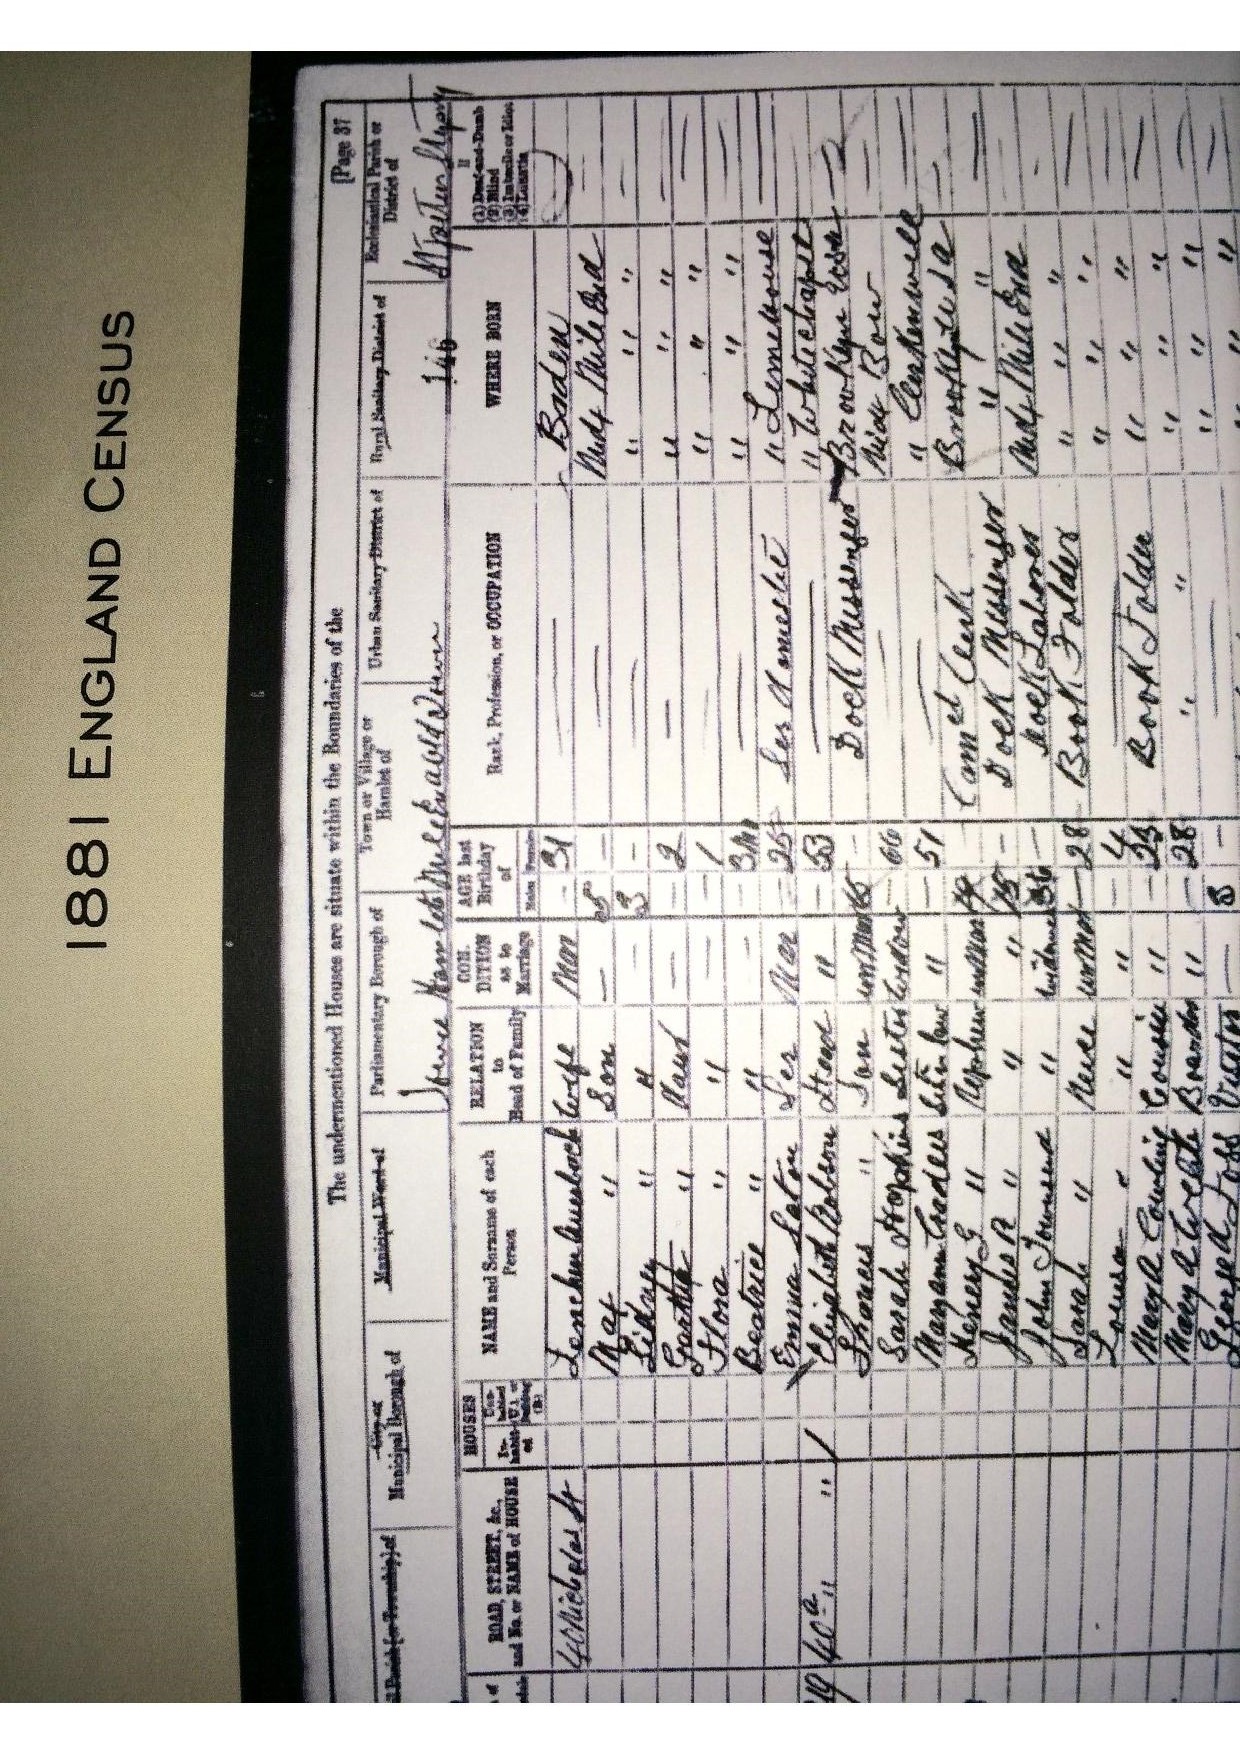 1881 ENGLAND CENSUS
The undermentioned Houses are situate within the Boundaries of the [Page 37
City or Municipal Borough of Municipal Ward of Parliamentary Borough of Town or Village or Hamlet of Urban Sanitary District of Rural Sanitary District of Ecclesiastical Parish or District of
Tower Hamlets Mile End Old Town 146 St Peter Stepney
ROAD, STREET, &c., and No. or NAME of HOUSE HOUSES NAME and Surname of each Person RELATION to Head of Family CONDITION as to Marriage AGE last Birthday of Males Females Rank, Profession, or OCCUPATION WHERE BORN If (1) Deaf-and-Dumb (2) Blind (3) Imbecile or Idiot (4) Lunatic
40 Nicholas St Lenchen Auerbach Wife Mar 31 Baden
Max " Son — 5 Midx Mile End
Sidney " " — 3 " " "
" Daur — 2 " " "
Flora " " — 1 " " "
Beatrice " " — 3 Mo " " "
Emma Eaton Ser Mar 25 Ser Domestic " Limehouse
19 40a " " Elizabeth Robson Head " 53 " Whitechapel
Thomas " Son unmar 15 Dock Messenger
Sarah Hopkins Sister Widow 66 Midx Bow
Maryann Sister in law " 51 " Clerkenwell
Henery G " Nephew unmar 19 Clerk
James R " " " 15 Dock Messenger " "
John Townsend " Widower 36 Dock Laborer Midx Mile End
Sarah " Niece unmar 28 Book Folder " " "
Louisa " " " 4 " " "
Mary A Cousin " 23 Book Folder " " "
Mary A Boarder " 28 " " " " "
George A Visitor — 8 " " "